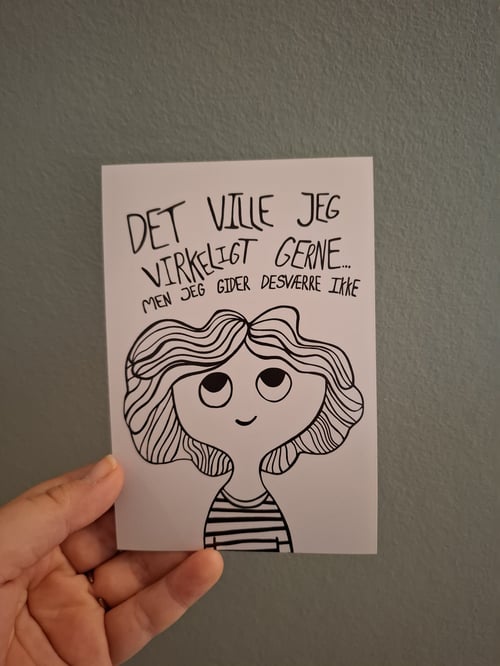 DET VILLE JEG
VIRKELIGT GERNE...
MEN JEG GIDER DESVÆRRE IKKE